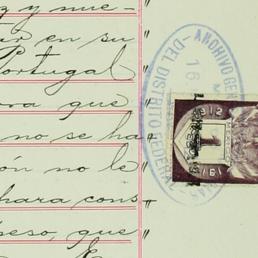 z y nue-
tar en su
Portugal
ara que
no se ha
ón no le
hara cons
peso, que
ARCHIVO GEN
DEL DISTRITO FEDERAL
16
1912
1